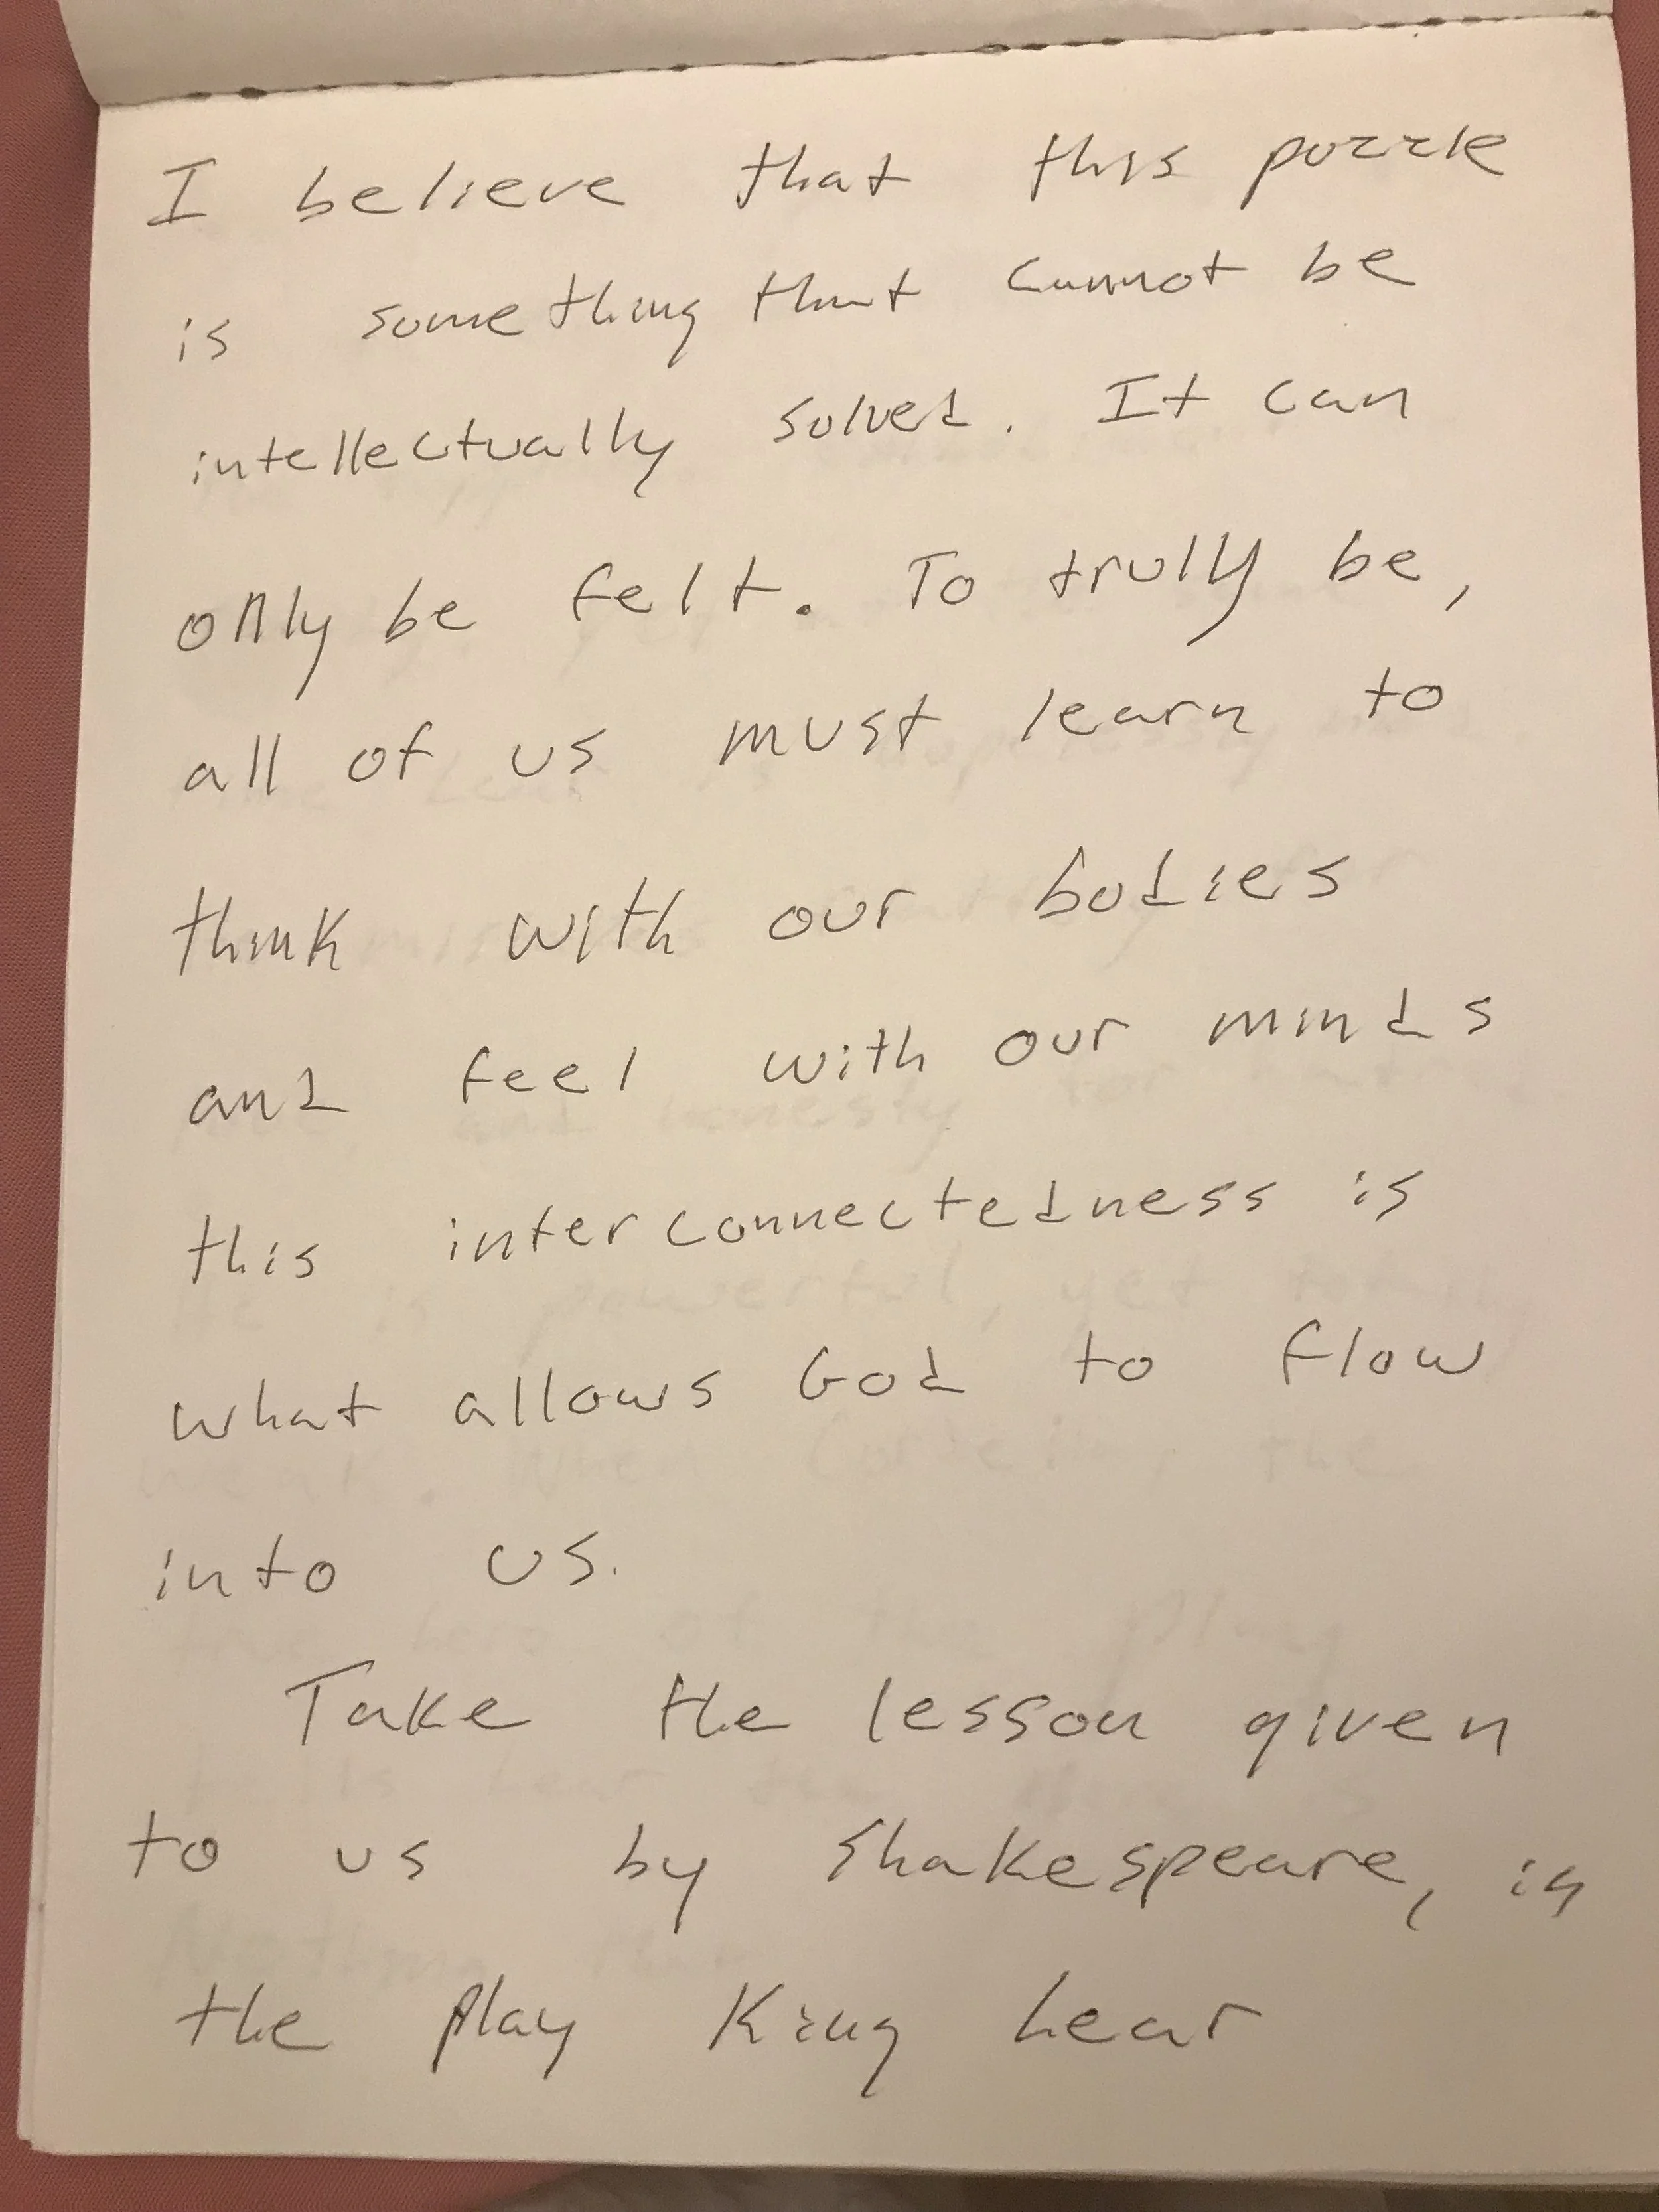 I believe that this puzzle
is something that cannot be
intellectually solved. It can
only be felt. To trully be,
all of us must learn to
think with our bodies
and feel with our minds
this interconnectedness is
what allows God to flow
into us.
Take the lesson given
to us by Shakespeare, in
the play King Lear